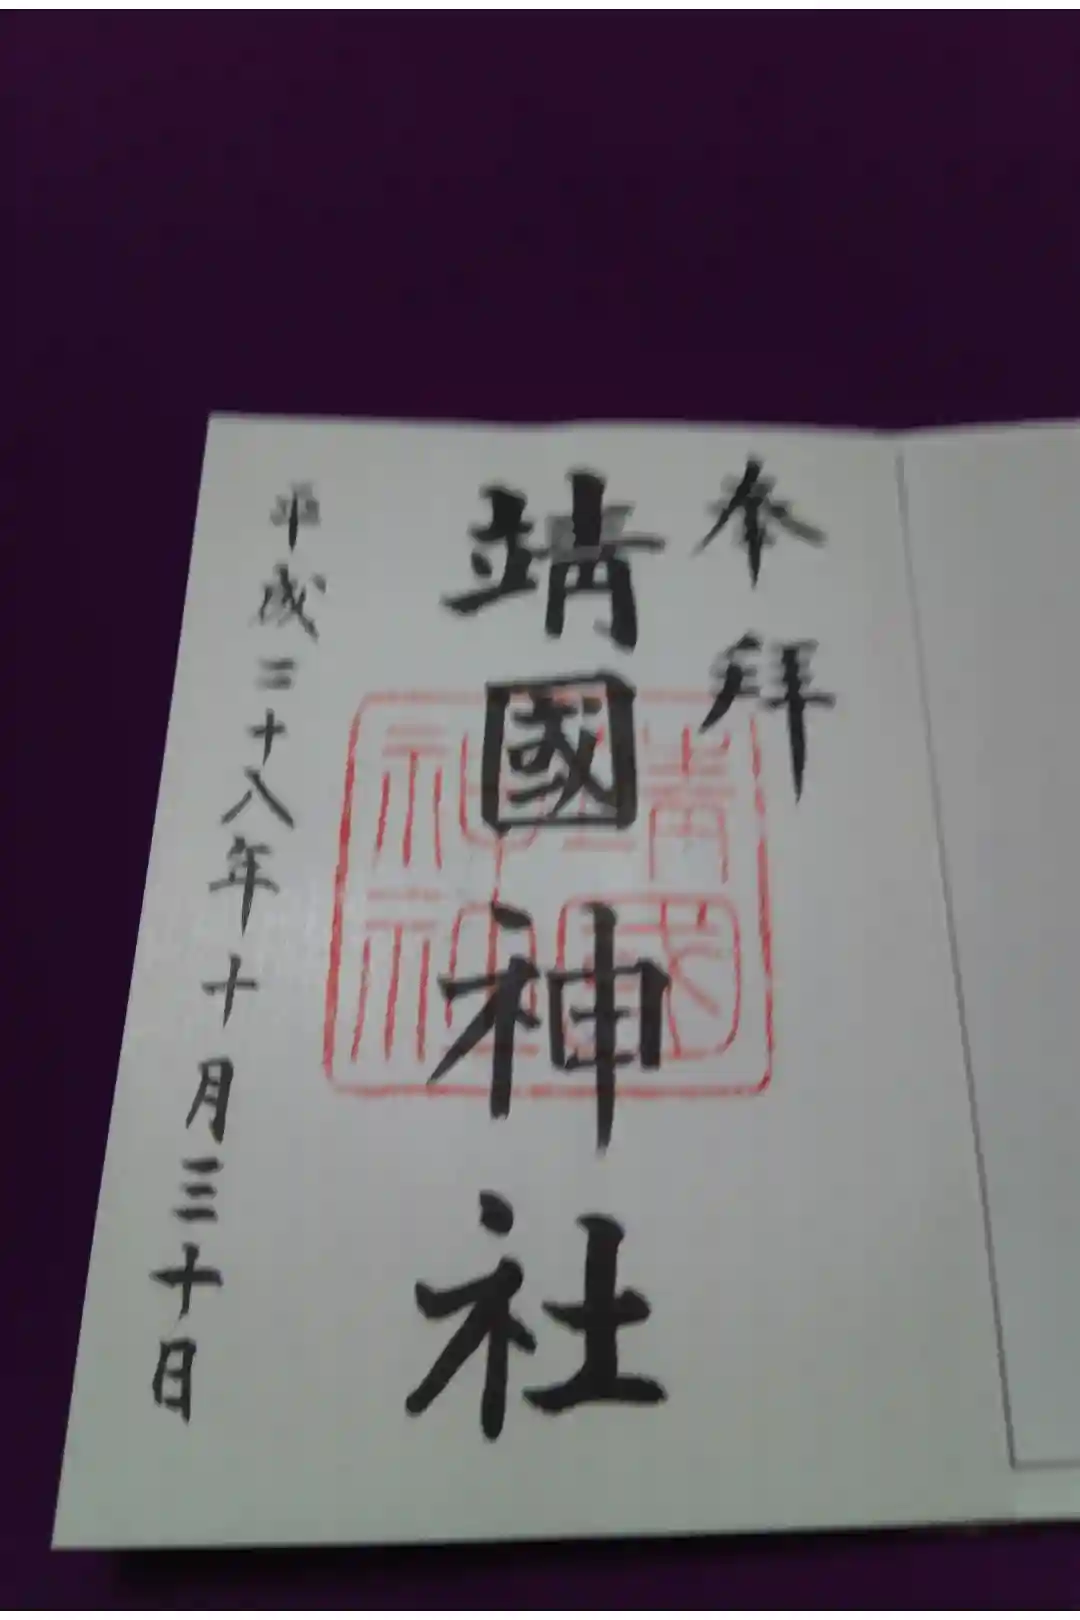 奉拝
靖國神社
平成二十八年十月三十日
靖國神社